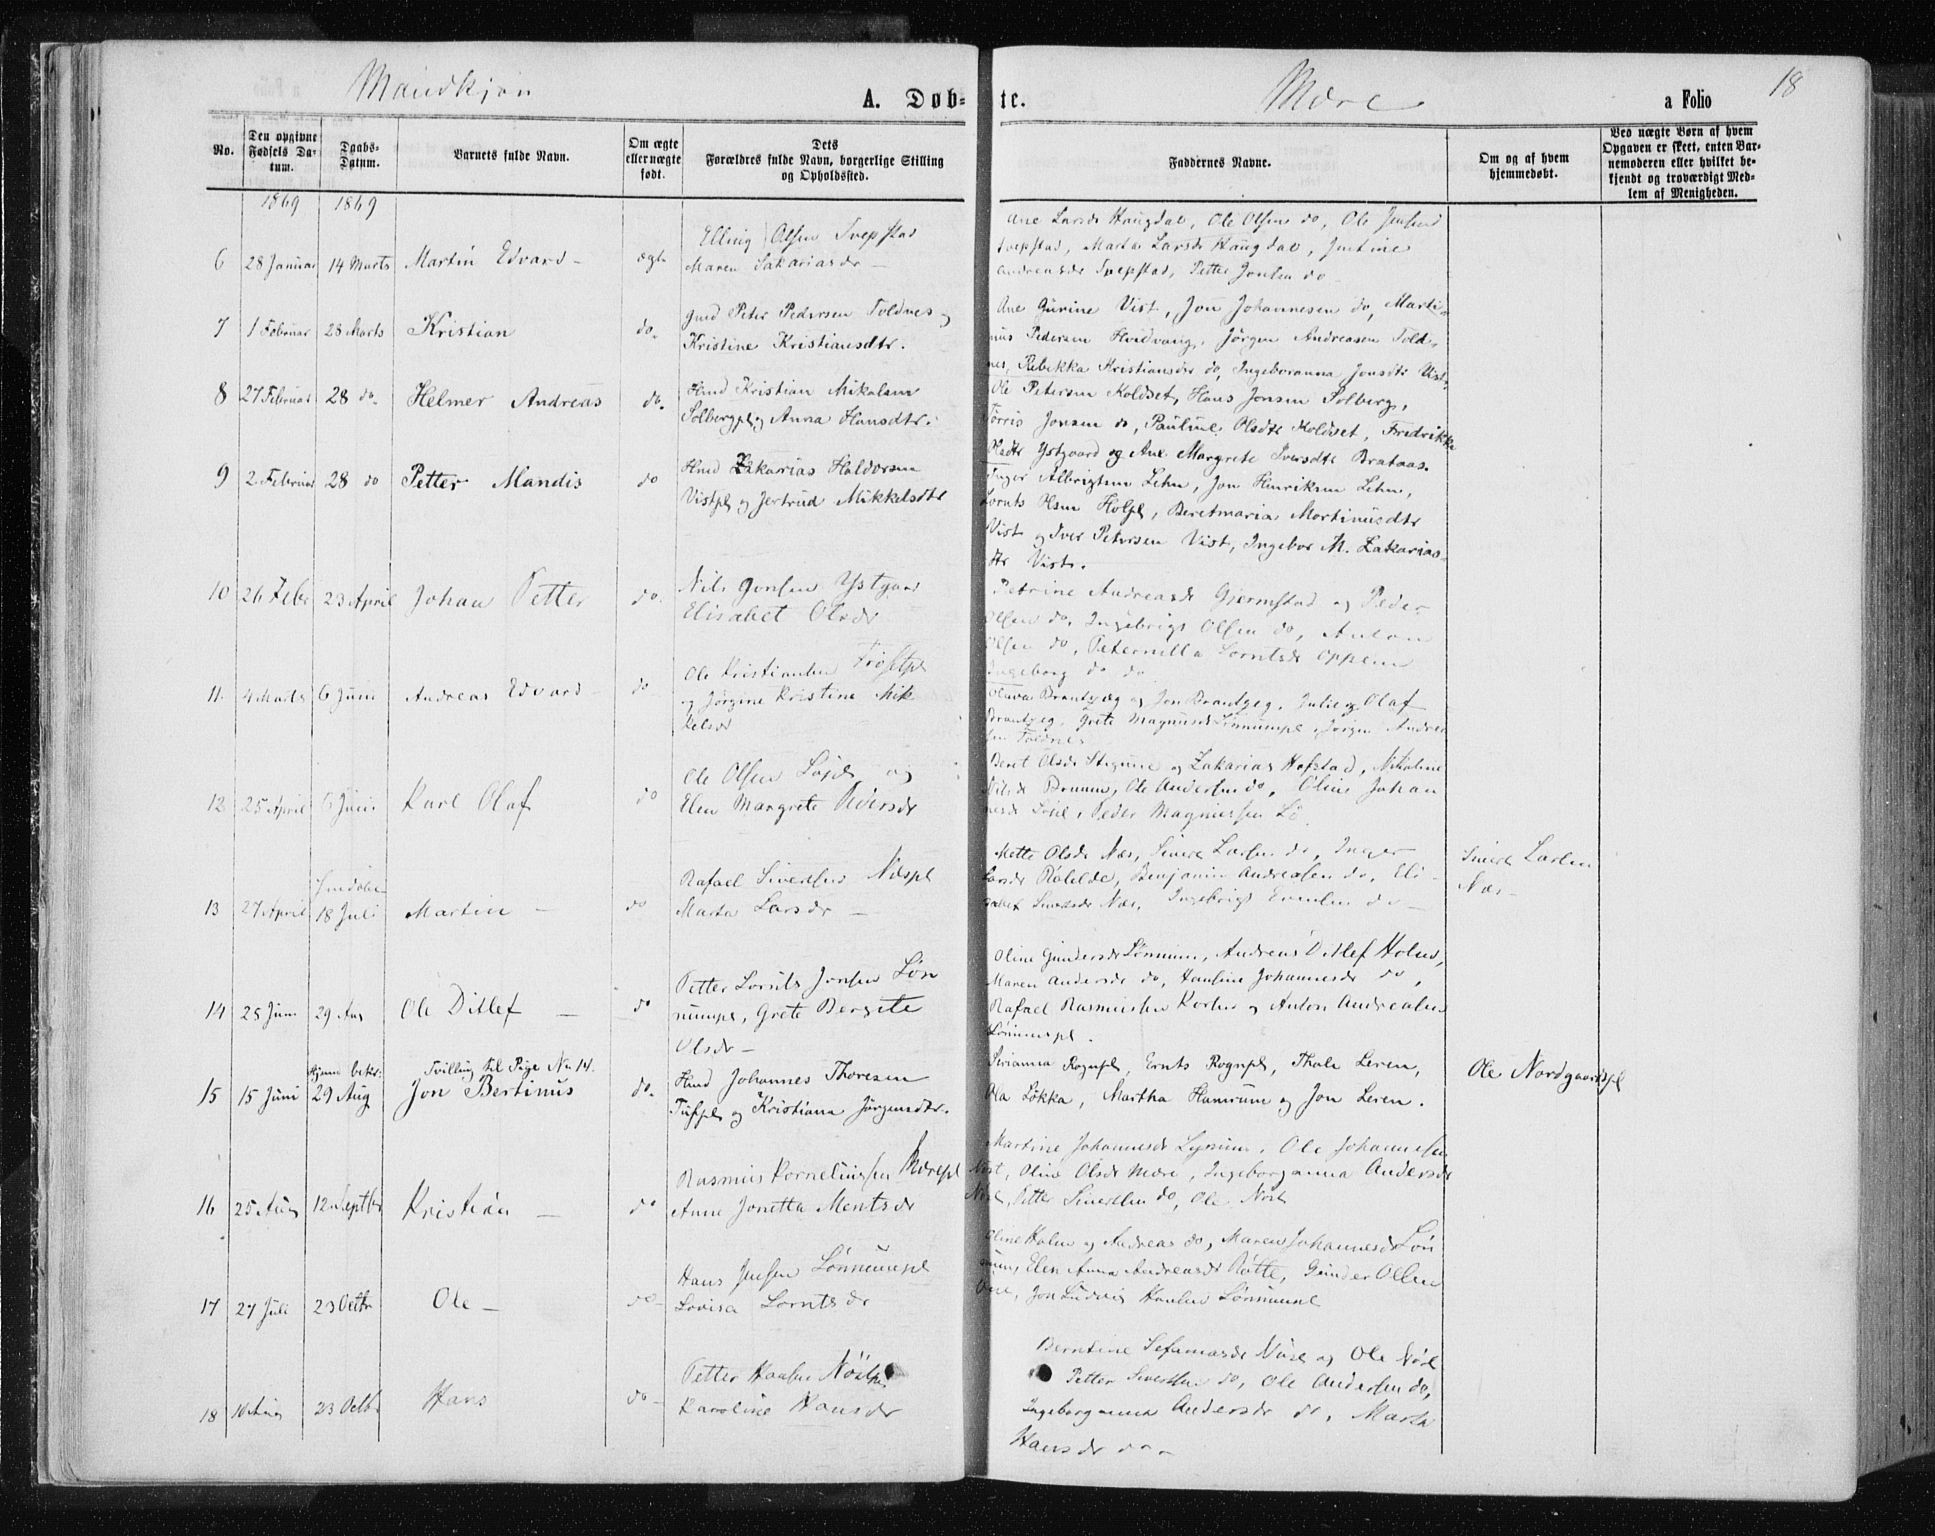 Mandkjøn
A. Døb-
te.
Mære
a Folio
18
No.
Den opgivne Fødsels Datum.
Daabs-Datum.
Barnets fulde Navn.
Om ægte eller uægte født.
Dets Forældres fulde Navn, borgerlige Stilling og Opholdssted.
Faddernes Navne.
Om og af hvem hjemmedøbt.
Ved uægte Børn af hvem Opgaven er skeet, enten Barnemoderen eller hvilket bekjendt og troværdigt Medlem af Menigheden.
1869 1869
6 28 Januar 14 Marts Martin Edvard - ægte
Elling Olsen Tvepstad
Maren Sakariasdr -
Ane Larsdr Haugdal, Ole Olsen do, Ole Jensen
Tvepstad, Marta Larsdr Haugdal, Justine
Andreasdr Tvepstad, Petter Jonsen do
7 1 Februar 28 Marts Kristian do.
Gmd Peter Pedersen Toldnes og
Kristine Kristiansdtr.
Ane Gurine Vist, Jon Johannesen do, Marti-
nus Pedersen Hvidvang, Jørgen Andreasen Told-
nes, Rebekka Kristiansdr do, Ingeboranna Jonsdtr Vist.
8 27 Februar 28 do. Helmer Andreas do.
Hmd Kristian Mikalsen
Solbergpl. og Anna Hansdtr.
Ole Petersen Koldset, Hans Jonsen Solberg,
Tørris Jonsen do, Pauline Olsdtr Koldset, Fredrikke
Olsdtr Ystgaard og Ane Margrete Iversdtr Brataas.
9 2 Februar 28 do Petter Mandis do
Hmd Zakarias Haldorsen
Vistpl og Jertrud Mikkelsdtr
Inger Albrigtsen Lehn, Jon Henriksen Lehn,
Lornts Hsen Holpl, Beretmaria Mortinusdtr
Vist og Iver Petersen Vist, Ingebor M. Zakarias-
dtr Vist.
10 26 Febr 23 April Johan Petter do.
Nils Jonsen Ystgaar
Elisabet Olsdr
Petrine Andreasdr Gjermstad og Peder
Olsen do, Ingebrigt Olsen do, Anton
Olsen do, Peternilla Lorntsdr Oppem
Ingeborg do do
11. 4 Marts 6 Juni Andreas Edvard do
Ole Kristiansen
og Jørgine Kristine Mik
kelsdr
Olava Brantzeg og Jon Brantzeg, Julie og Olaf
Brantzeg, Grete Magnusdr Lønnumpl, Jørgen Andrea
sen Toldnes
12 25 April 6 Juni Karl Olaf do
Ole Olsen og
Elen Margrete Pedersdr
Beret Olsdr og Zakarias Hofstad, Nikoline
Nilsdr Brunn, Ole Andersen do, Johan
Peder Magnussen
13 27 April 18 Juli Martin - do
Rafael Sivertsen Næspl
Marta Larsdr -
Mette Olsdr Næs, Sivert Larsen do, Inger
Larsdr, Benjamin Andreasen do, Eli-
sabet Sivertsdr Næs, Ingebrigt Evensen do -
Sivert Larsen
Næs -
14 25 Juni 29 Aug Ole Ditlef - do
Petter Lornts Jonsen Løn
numpl, Grete Bergite
Olsdr -
Oline Gundersdr Lønnum, Andreas Ditlef Holm,
Maren Andersdr do, Pauline Johannesdr do,
Rafael Rasmussen og Anton Andreasen
Lønnumpl.
15 15 Juni Hjemmebekr: 29 Aug Tvilling til Pige No 14. Jon Bertinus do.
Hmd Johannes Thoresen
Tufpl og Kristiana Jørgensdtr.
Sirianna Rognpl, Ernts Rognpl, Thale Leren,
Ola Løkka, Martha Hamrum og Jon Leren.
Ole Nordgaardspl
16 25 Aug 12 Septbr Kristian - do
Rasmus Korneliussen Mærepl
Anne Jonetta Mentsdr
Martine Johannesdr Lynum, Ole Johannesen
Olsdr Mære, Ingeborganna Andersdr
Petter Sivertsen do, Ole
17 27 Juli 23 Octbr Ole - do -
Hans Jensen Lønnumpl
Lovisa Lorntsdr
Oline Holm og Andreas do, Maren Johannesdr Løn
num, Elen Anna Andreasdr, Gunder Olsen
Jon Ludvig Hansen Lønnumpl
18 10 Aug 23 Octbr Hans do -
Petter Hansen
Karoline Hansdr
Berntine og Ole
Petter Sivertsen do, Ole Andersen do,
Ingeborganna Andersdr do, Marta
Hansdr do -